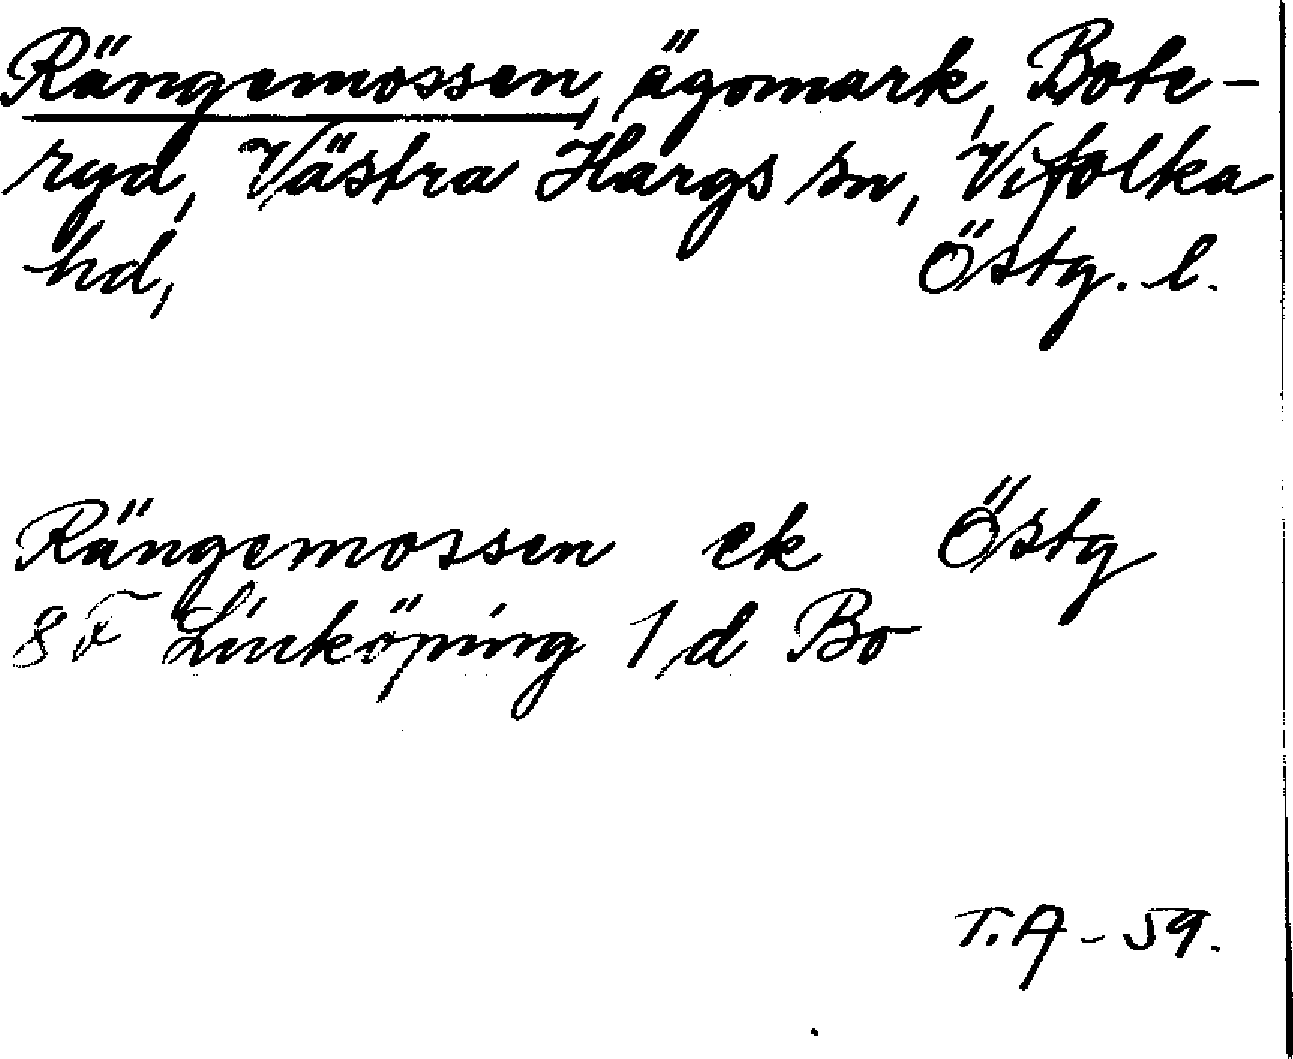 Rängemossen, ägomark, Bote-
ryd, Västra Hargs sn, Vifolka
hd, Östg. l.
Rängemossen ek Östg
8 F Linköping 1 d Bo
T.A - 59.